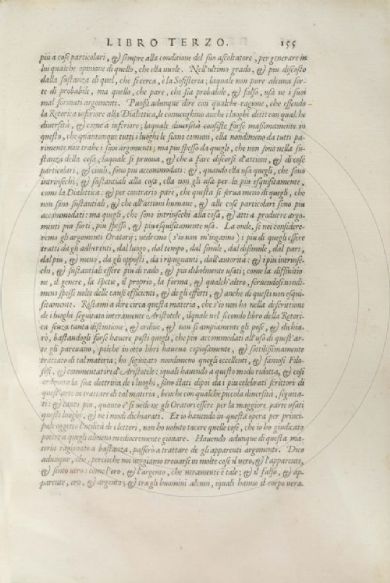 LIBRO TERZO. 155
più a cose particolari, & sempre alla conditione del suo ascoltatore, per generare in
lui qualche opinione di quello, che ella vuole. Nell'ultimo grado, & più discosto
dalla sustanza di quel, che si cerca, è la Sofisteria; laquale non pure alcuna sor-
te di probabile, ma quello, che pare, che sia probabile, & falso, usa ne i suoi
mal formati argomenti. Puossi adunque dire con qualche ragione, che essendo
la Retorica inferiore alla Dialettica, le convenghino anche i luoghi detti con qualche
diversità, & come a inferiore; laquale diversità consiste forse massimamente in
questo, che quantunque tutti i luoghi le siano comuni, ella nondimeno da tutti pa-
rimente non trahe i suoi argomenti; ma più spesso da quegli, che non sono nella su-
stanza della cosa, laquale si pruova, & che a fare discorsi d'attioni, & di cose
particolari, & civili, sono più accommodati: &, quando ella usa quegli, che sono
intrinsechi, & sustantiali alla cosa, ella non gli usa però sì esquisitamente,
come la Dialettica: & per contrario pare, che questa si serva meno di quegli, che
non sono sustantiali, & che all'attioni humane, & alle cose particolari sono più
accommodati: ma quegli, che sono intrinsechi alla cosa, & atti a produrre argo-
menti più forti, più spesso, & più esquisitamente usa. La onde, se noi considere-
remo gli argomenti Oratorij; vedremo (s'io non m'inganno) i più di quegli essere
tratti da gli adherenti, dal luogo, dal tempo, dal simile, dal dissimile, dal pari,
dal piu, & meno, da gli oppositi, da i ripugnanti, dall'autorità: & i piu intrinse-
chi, & sustantiali essere piu di rado, & piu debolmente usati; come la diffinitio-
ne, il genere, la spetie, il proprio, la forma, & qualch'altro, servendosi nondi-
meno spesso nelle cause efficienti, & de gli effetti, & anche di questi non esqui-
sitamente. Restami a dire circa questa materia, che s'io non ho nella descrittione
de i luoghi seguitato interamente Aristotele, ilquale nel secondo libro della Retori-
ca senza tanta distintione, & ordine, & non sì ampiamente gli pose, & dichia-
rò, bastandogli forse havere posti quegli, che più accommodati all'uso di quest'ar-
te gli parevano, poiche in otto libri haveva copiosamente, & sottilissimamente
trattato di tal materia; ho seguitato nondimeno quegli eccellenti, & famosi Filo-
sofi, & commentatori d'Aristotele; iquali havendo a questo modo ridotta, & così
la sua dottrina de i luoghi, sono stati dipoi da i piu celebrati scrittori di
quest'arte in trattare di tal materia, benche con qualche piccola diversità, seguita-
ti: & tanto più, quanto si vede ne gli Oratori essere per la maggiore parte usati
questi luoghi, & ne i modi dichiarati. Et io havendo in questa opera per princi-
pale oggetto l'utilità de i lettori, non ho voluto tacere quelle cose, che io ho giudicato
potere a quegli almeno mediocremente giovare. Havendo adunque di questa ma-
teria ragionato a bastanza, passerò a trattare de gli apparenti argomenti. Dico
adunque, che, perciòche noi veggiamo trovarsi in molte cose il vero, & l'apparente,
& sincero: come l'oro, & l'argento, che veramente è tale; & il falso, & ap-
parente, oro, & argento; & tra gli huomini alcuni, iquali hanno il corpo vera-